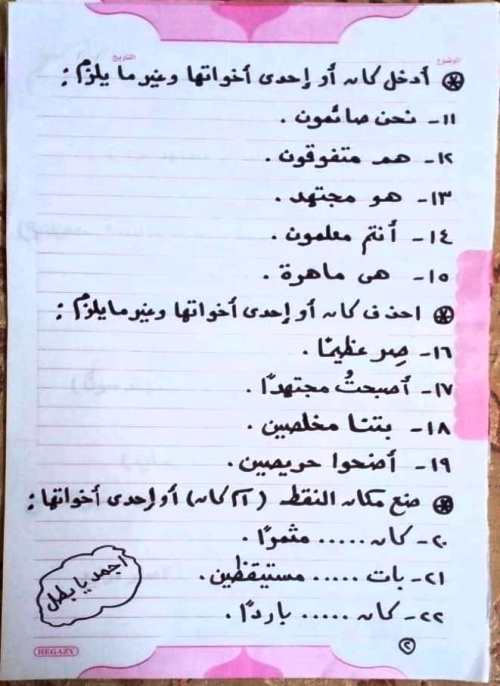 الموضوع التاريخ
* أدخل كان أو إحدى أخواتها وغير ما يلزم :
١١- نحن صائمون .
١٢- هم متفوقون .
١٣- هو مجتهد .
١٤- أنتم معلمون .
١٥- هى ماهرة .
* احذف كان أو إحدى أخواتها وغير ما يلزم :
١٦- صِر عظيمًا .
١٧- أصبحتُ مجتهدًا .
١٨- بتنا مخلصين .
١٩- أضحوا حريصين .
* ضع مكان النقط (اسم كان) أو إحدى أخواتها :
٢٠- كان ..... مثمرًا .
٢١- بات ..... مستيقظين .
٢٢- كان ..... باردًا .
اجمد يا بطل
٢
HEGAZY